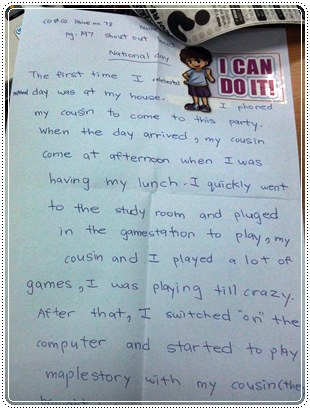 issue no. 78
pg. M7 Shout out
National day
I CAN
DO IT!
The first time I celebrated
national day was at my house. I phoned
my cousin to come to this party.
When the day arrived, my cousin
come at afternoon when I was
having my lunch. I quickly went
to the study room and pluged
in the gamestation to play, my
cousin and I played a lot of
games, I was playing till crazy.
After that, I switched "on" the
computer and started to play
maplestory with my cousin (the